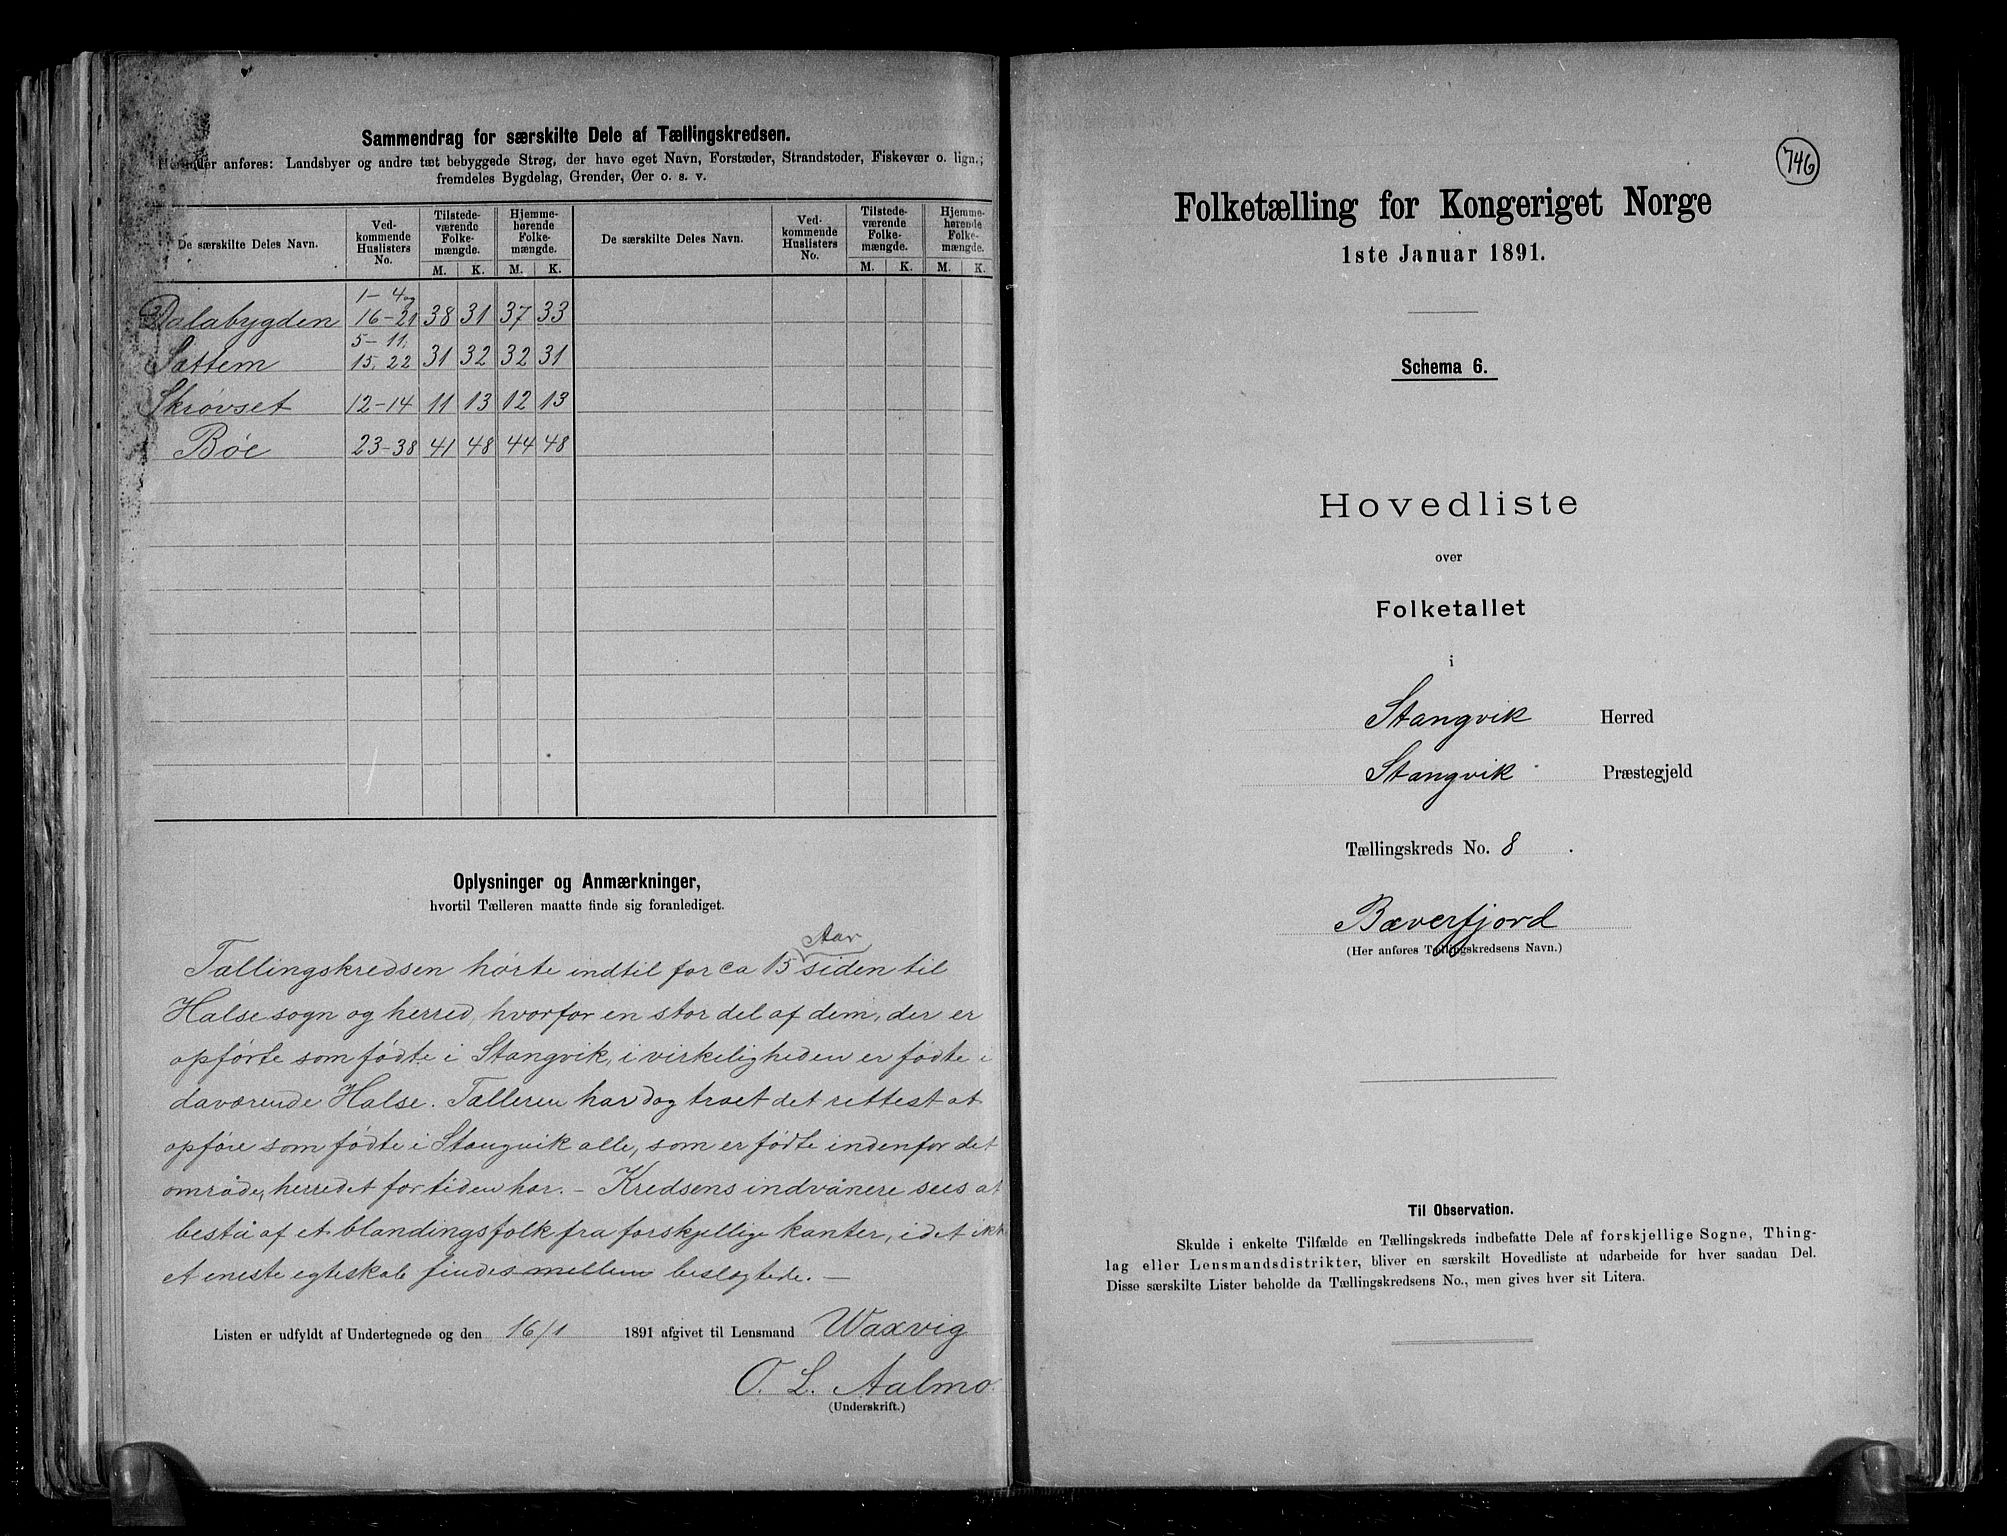 Sammendrag for særskilte Dele af Tællingskredsen.
Herunder anføres: Landsbyer og andre tæt bebyggede Strøg, der have eget Navn, Forstæder, Strandsteder, Fiskevær o. lign.;
fremdeles Bygdelag, Grender, Øer o. s. v.
De særskilte Deles Navn. Ved- kommende Huslisters No. Tilstede- værende Folke- mængde. Hjemme- hørende Folke- mængde. De særskilte Deles Navn. Ved- kommende Huslisters No. Tilstede- værende Folke- mængde. Hjemme- hørende Folke- mængde.
M. K. M. K. M. K. M. K.
Dalabygden 1-4 og 16-21 38 31 37 33
Sættem 5-11, 15, 22 31 32 32 31
Skrøvset 12-14 11 13 12 13
Bøe 23-38 41 48 44 48
Oplysninger og Anmærkninger,
hvortil Tælleren maatte finde sig foranlediget.
Tællingskredsen hørte indtil for ca 15 Aar siden til
Halse sogn og herred, hvorfor en stor del af dem, der er
opførte som fødte i Stangvik, i virkeligheden er fødte i
daværende Halse. Tælleren har dog troet det rettest at
opføre som fødte i Stangvik alle, som er fødte indenfor det
område, herredet for tiden har. – Kredsens indvånere sees at
bestå af et blandingsfolk fra forskjellige kanter, idet ikk
et eneste egteskab findes mellem beslægtede. —
Listen er udfyldt af Undertegnede og den 16/1 1891 afgivet til Lensmand Waxvig
O. L. Aalmo
(Underskrift.)
746
Folketælling for Kongeriget Norge
1ste Januar 1891.
Schema 6.
Hovedliste
over
Folketallet
i
Stangvik Herred
Stangvik Præstegjeld
Tællingskreds No. 8.
Bæverfjord
(Her anføres Tællingskredsens Navn.)
Til Observation.
Skulde i enkelte Tilfælde en Tællingskreds indbefatte Dele af forskjellige Sogne, Thing-
lag eller Lensmandsdistrikter, bliver en særskilt Hovedliste at udarbeide for hver saadan Del.
Disse særskilte Lister beholde da Tællingskredsens No., men gives hver sit Litera.